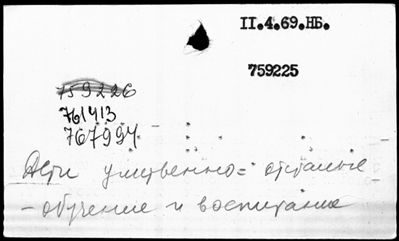 II.4.69.НБ.
759225
759226
761413
767994
Дети умственно= отсталые
- обучение и воспитание